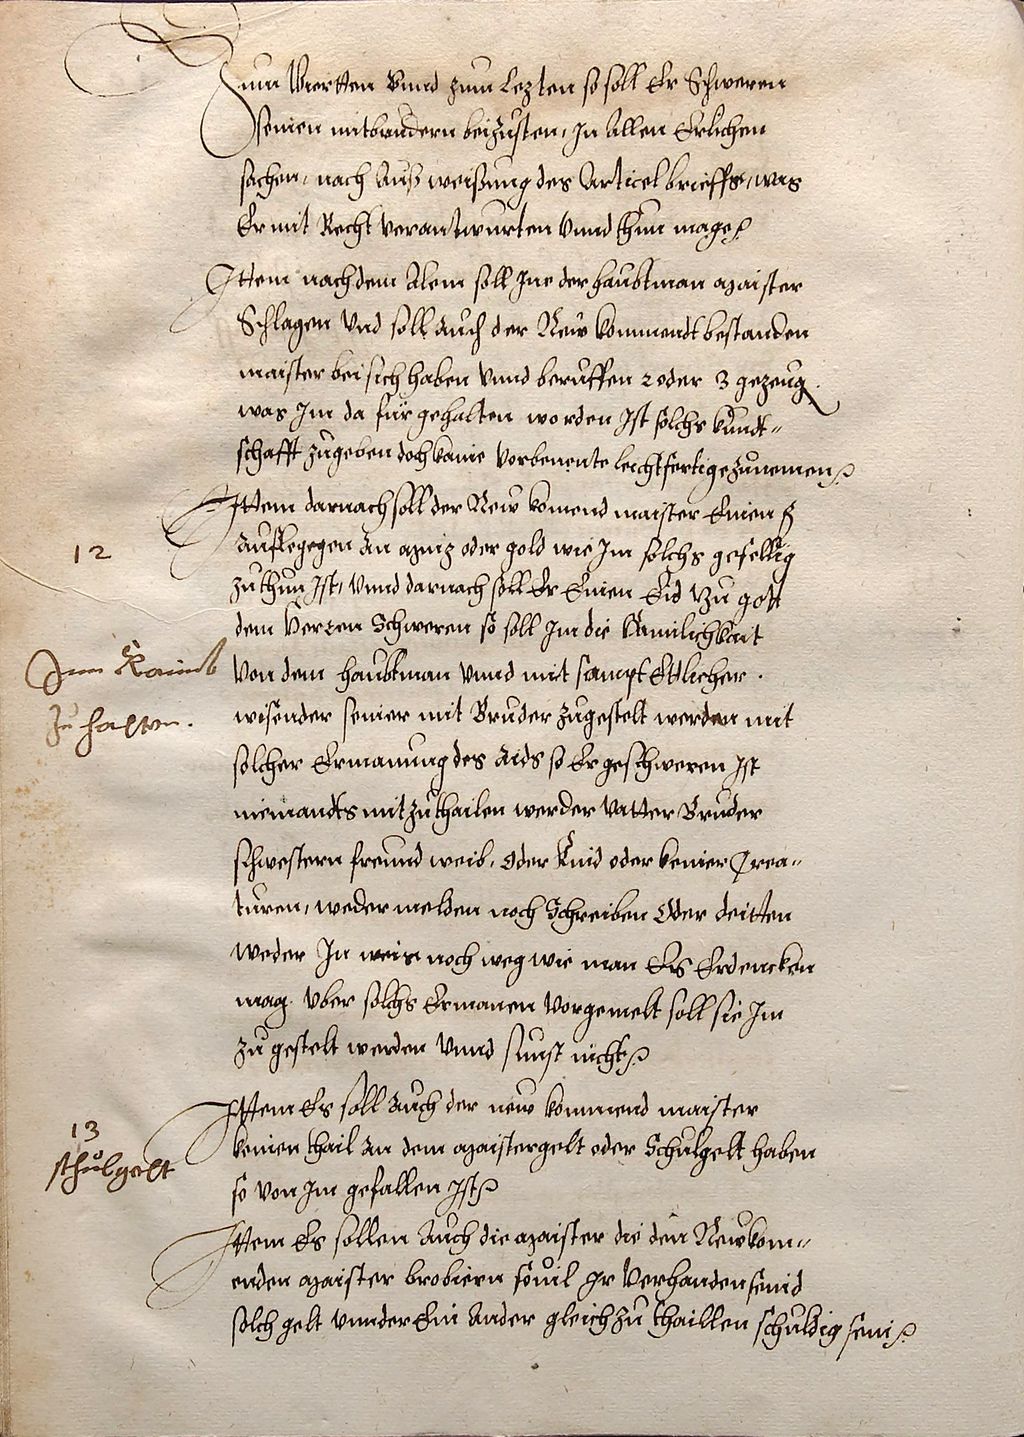 Zum Viertten Vnnd zum Lezten so soll Er Schweren
seinen mitbrudern beizusten, In Allen Erlichen
sachen, nach Auß weißung des Articel brieffs, was
Er mit Recht verantwurten Vnnd thun mage
Ittem nach dem Alem soll Ine der haubtman maister
Schlagen Vnd soll Auch der New kommendt bestanden
maister bei sich haben Vnnd beruffen 2 oder 3 gezeug
was Im da für gehalten worden Ist solchs kundt-
schafft zugeben doch kaine Vorbenente leichtfertige zunemen
Ittem darnach soll der New komend maister Einen
Auff legegen An mniz oder gold wie Im solchs gefellig
zu thun Ist, Vnnd darnach soll Er Einen Eid Zu gott
dem Herren Schweren so soll Im die Haimlichkait
Von dem haubtman Vnnd mit sampt Etlicher
wisender seiner mit Bruder zugestelt werden mit
solcher Ermanung des Aids so Er geschweren Ist
niemandts mitzuthailen werder Vatter Bruder
schwestern freund weib, Oder Kind oder keiner Crea-
turen, weder melden noch Schreiben Oder deitten
weder In weis noch weg wie man Es Erdencken
mag. Vber solchs Ermanen Vorgemelt soll sie Im
zu gestelt werden Vnnd sunst nicht
Ittem Es soll Auch der new kommend maister
keinen thail An dem maistergelt oder Schulgelt haben
so von Im gefallen Ist
Ittem Es sollen Auch die maister die den Newkom-
enden maister brobiern souil Ir Verhanden seind
solch gelt vnnder Ein Ander gleich zu thaillen schuldig sein
12
zu halten.
13
schulgelt